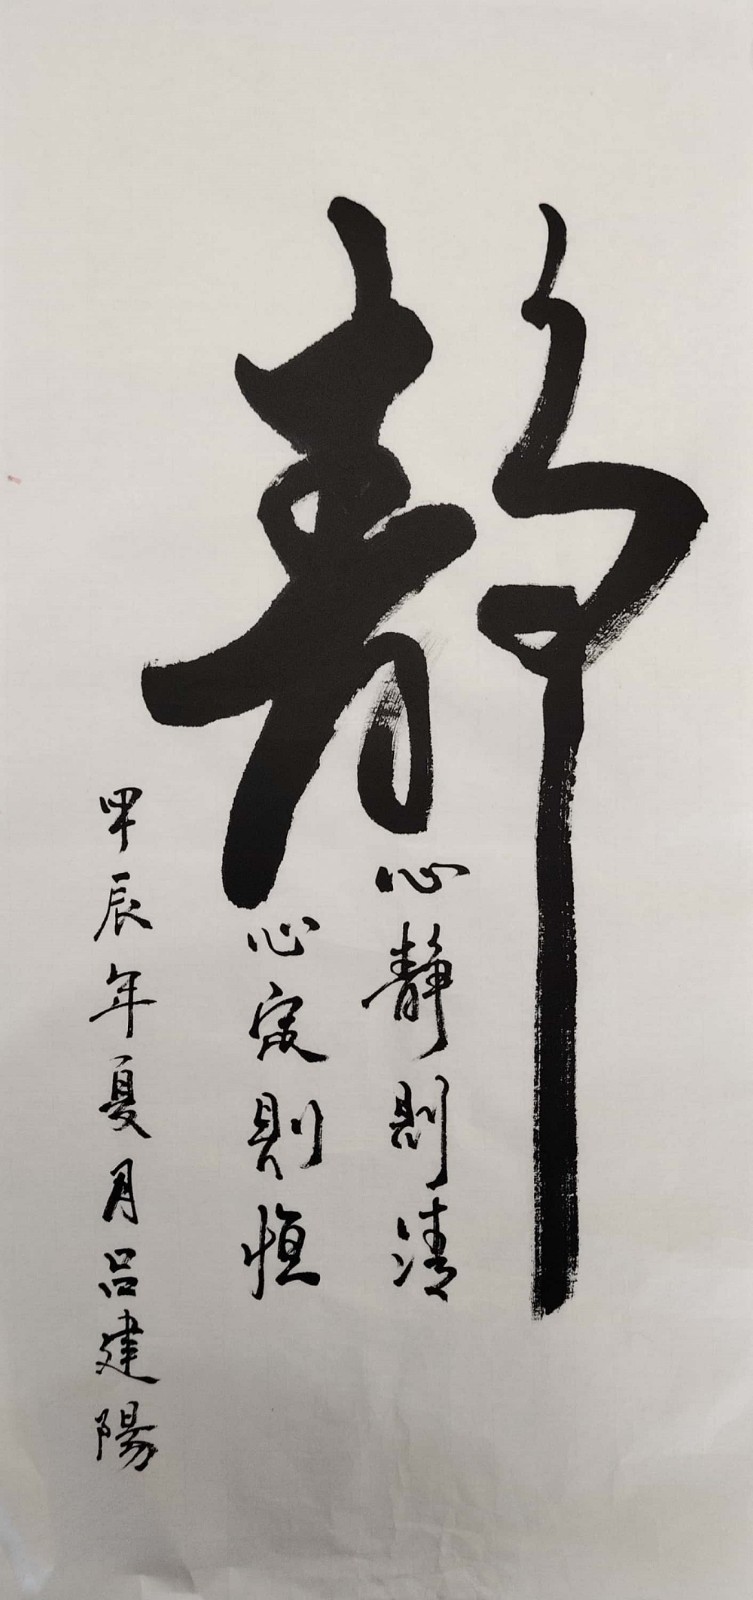 靜
心靜則清
心寂則恒
甲辰年夏月呂建陽